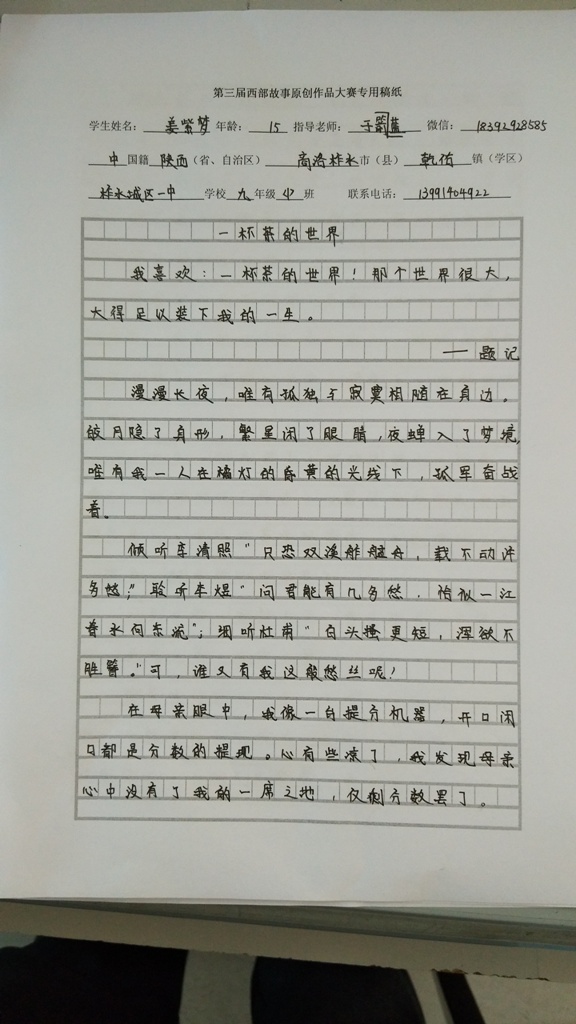 第三届西部故事原创作品大赛专用稿纸
学生姓名： 姜紫梦 年龄： 15 指导老师： 微信： 18392928585
中 国籍 陕西（省、自治区） 商洛柞水 市（县） 乾佑 镇（学区）
柞水城区一中 学校 九 年级 班 联系电话： 13991404922
一杯茶的世界
我喜欢：一杯茶的世界！那个世界很大，
大得足以装下我的一生。
——题记
漫漫长夜，唯有孤独于寂寞相随在身边。
皎月隐了身形，繁星闭了眼睛，夜蝉入了梦境，
唯有我一人在橘灯的昏黄的光线下，孤军奋战
着。
倾听李清照“只恐双溪舴艋舟，载不动许
多愁；”聆听李煜“问君能有几多愁，恰似一江
春水向东流”；细听杜甫“白头搔更短，浑欲不
胜簪。”可，谁又有我这般愁丝呢！
在母亲眼中，我像一台提分机器，开口闭
口都是分数的提现。心有些凉了，我发现母亲
心中没有了我的一席之地，仅剩分数罢了。